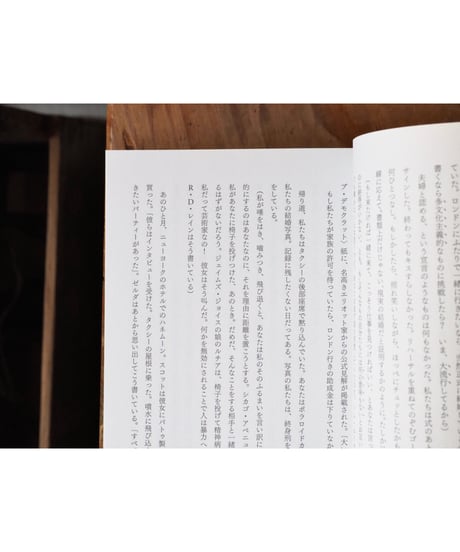 ていた。ロンドンにふたりで一緒に行きたいな
書くなら多文化主義的なものに挑戦したら？　いま、大流行してるから）
夫婦と認める、という宣言のようなものは何もなかった。私たちは式のあと
サインした。終わってもキスすらしなかった。リハーサルを重ねてのぞむゴー
何ひとつない。もしし
ブ・デモクラット』紙に、名高きエリオット家からの公式見解が掲載された。（大
もし私たちが家族の許可を待っていたら、ロンドン行きの助成金は下りていなか
帰り道、私たちはタクシーの後部座席で黙り込んでいた。あなたはポラロイドカ
私たちの結婚写真。記録に残したくない日だってある。写真の私たちは、終身刑を
をしている。
（私が唾をはき、噛みつき、飛び退くと、あなたは私のそのふるまいを言い訳に
的にするのはあなたなのに、それを理由に距離を置こうとする。シカゴ・アベニュ
私があなたに椅子を投げつけた、あのとき。だめだ、そんなことをする相手と一緒
るはずがないだろう。ジェイムズ・ジョイスの娘のルチアは、椅子を投げて精神病
私だって芸術家なの！　彼女はそう叫んだ。何かを無効にされることで人は暴力へ
R・D・レインはそう書いている）
あのひと月、ニューヨークのホテルでのハネムーン。スコットは彼女にパトゥ製
買った。「彼らはインタビューを受けた。タクシーの屋根に乗った。噴水に飛び込
きたいパーティーがあった」。ゼルダはあとから思い出してこう書いている。「すべ